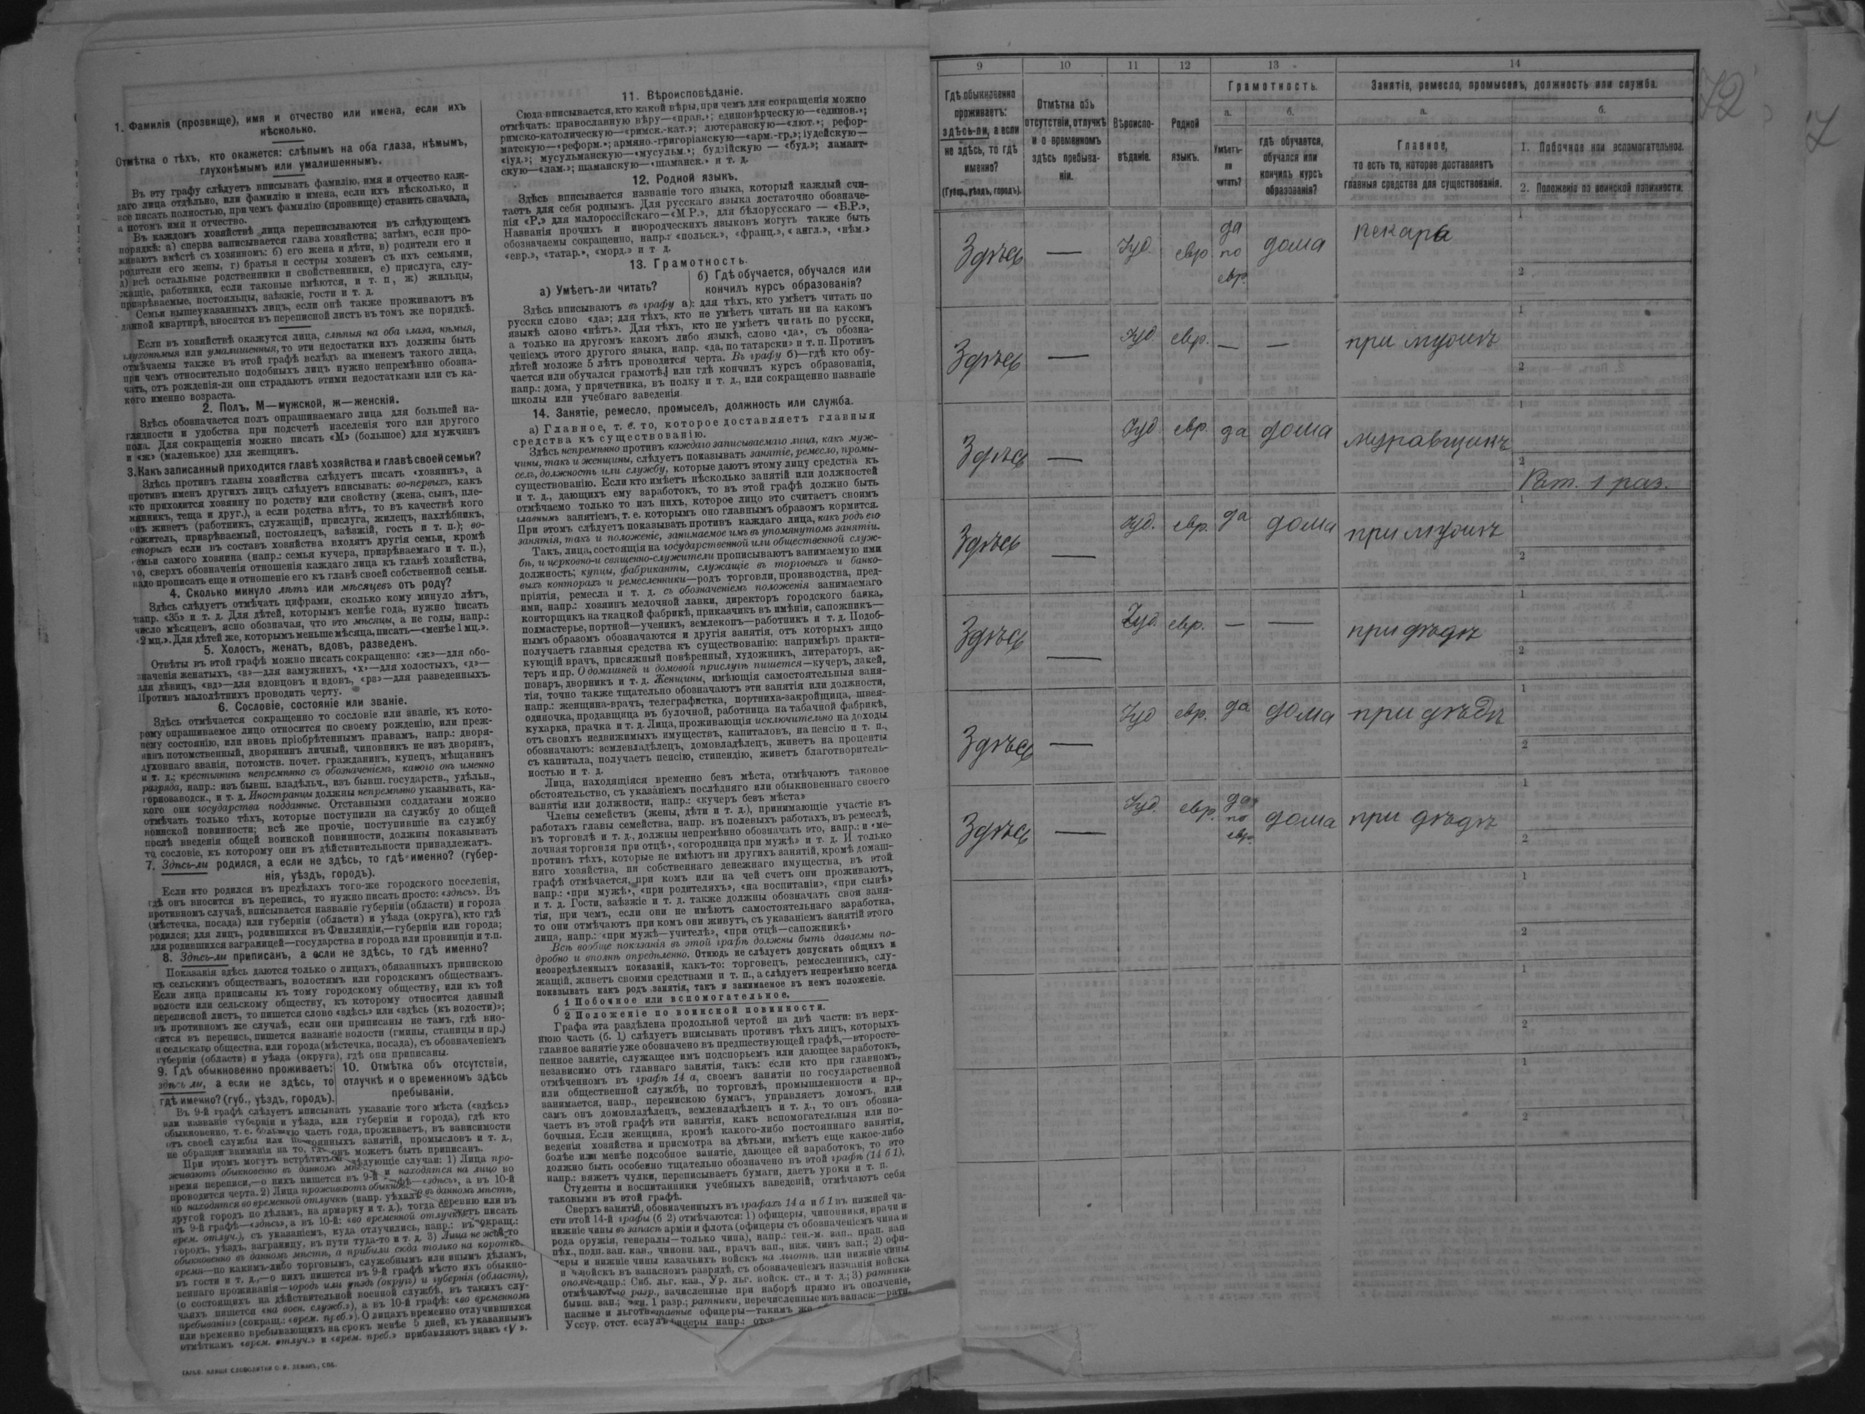 1. Фамилія (прозвище), имя и отчество или имена, если ихъ
нѣсколько.
Отмѣтка о тѣхъ, кто окажется: слѣпымъ на оба глаза, нѣмымъ,
глухонѣмымъ или умалишеннымъ.
Въ эту графу слѣдуетъ вписывать фамилію, имя и отчество каж-
даго лица отдѣльно, или фамилію и имена, если ихъ нѣсколько, и
все писать полностью, при чемъ фамилію (прозвище) ставить сначала,
а потомъ имя и отчество.
Въ каждомъ хозяйствѣ лица переписываются въ слѣдующемъ
порядкѣ: а) сперва записывается глава хозяйства; затѣмъ, если про-
живаютъ вмѣстѣ съ хозяиномъ: б) его жена и дѣти, в) родители его и
родители его жены, г) братья и сестры хозяевъ съ ихъ семьями,
д) всѣ остальные родственники и свойственники, е) прислуга, слу-
жащіе, работники, если таковые имѣются, и т. п., ж) жильцы,
призрѣваемые, постояльцы, заѣзжіе, гости и т. д.
Семьи вышеуказанныхъ лицъ, если онѣ также проживаютъ въ
данной квартирѣ, вносятся въ переписной листъ въ томъ же порядкѣ.
Если въ хозяйствѣ окажутся лица, слѣпыя на оба глаза, нѣмыя,
глухонѣмыя или умалишенныя, то эти недостатки ихъ должны быть
отмѣчаемы также въ этой графѣ вслѣдъ за именемъ такого лица,
при чемъ относительно подобныхъ лицъ нужно непремѣнно обозна-
чать, отъ рожденія-ли они страдаютъ этими недостатками или съ ка-
кого именно возраста.
2. Полъ, М—мужской, ж—женскій.
Здѣсь обозначается полъ опрашиваемаго лица для большей на-
глядности и удобства при подсчетѣ населенія того или другого
пола. Для сокращенія можно писать «М» (большое) для мужчинъ
и «ж» (маленькое) для женщинъ.
3. Какъ записанный приходится главѣ хозяйства и главѣ своей семьи?
Здѣсь противъ главы хозяйства слѣдуетъ писать «хозяинъ», а
противъ именъ другихъ лицъ слѣдуетъ вписывать: во-первыхъ, какъ
кто приходится хозяину по родству или свойству (жена, сынъ, пле-
мянникъ, теща и друг.), а если родства нѣтъ, то въ качествѣ кого
онъ живетъ (работникъ, служащій, прислуга, жилецъ, нахлѣбникъ,
сожитель, призрѣваемый, постоялецъ, заѣзжій, гость и т. п.); во-
вторыхъ если въ составъ хозяйства входятъ другія семьи, кромѣ
семьи самого хозяина (напр.: семья кучера, призрѣваемаго и т. п.),
то, сверхъ обозначенія отношенія каждаго лица къ главѣ хозяйства,
надо прописать еще и отношеніе его къ главѣ своей собственной семьи.
4. Сколько минуло лѣтъ или мѣсяцевъ отъ роду?
Здѣсь слѣдуетъ отмѣчать цифрами, сколько кому минуло лѣтъ,
напр. «35» и т. д. Для дѣтей, которымъ менѣе года, нужно писать
число мѣсяцевъ, ясно обозначая, что это мѣсяцы, а не годы, напр.:
«2 мц.». Для дѣтей же, которымъ меньше мѣсяца, писать—«менѣе 1 мц.».
5. Холостъ, женатъ, вдовъ, разведенъ.
Отвѣты въ этой графѣ можно писать сокращенно: «ж»—для обо-
значенія женатыхъ, «з»—для замужнихъ, «х»—для холостыхъ, «д»—
для дѣвицъ, «вд»—для вдовцовъ и вдовъ, «рз»—для разведенныхъ.
Противъ малолѣтнихъ проводить черту.
6. Сословіе, состояніе или званіе.
Здѣсь отмѣчается сокращенно то сословіе или званіе, къ кото-
рому опрашиваемое лицо относится по своему рожденію, или преж-
нему состоянію, или вновь пріобрѣтеннымъ правамъ, напр.: дворя-
нинъ потомственный, дворянинъ личный, чиновникъ не изъ дворянъ,
духовнаго званія, потомств. почет. гражданинъ, купецъ, мѣщанинъ
и т. д.; крестьянинъ непремѣнно съ обозначеніемъ, какого онъ именно
разряда, напр.: изъ бывш. владѣльч., изъ бывш. государств., удѣльн.,
горнозаводск., и т. д. Иностранцы должны непремѣнно указывать, ка-
кого они государства подданные. Отставными солдатами можно
отмѣчать только тѣхъ, которые поступили на службу до общей
воинской повинности; всѣ же прочіе, поступившіе на службу
послѣ введенія общей воинской повинности, должны показывать
то сословіе, къ которому они въ дѣйствительности принадлежатъ.
7. Здѣсь-ли родился, а если не здѣсь, то гдѣ именно? (губер-
нія, уѣздъ, городъ).
Если кто родился въ предѣлахъ того-же городского поселенія,
гдѣ онъ вносится въ перепись, то нужно писать просто: «здѣсь». Въ
противномъ случаѣ, вписывается названіе губерніи (области) и города
(мѣстечка, посада) или губерніи (области) и уѣзда (округа), кто гдѣ
родился; для лицъ, родившихся въ Финляндіи,—губерніи или города;
для родившихся заграницей—государства и города или провинціи и т.п.
8. Здѣсь-ли приписанъ, а если не здѣсь, то гдѣ именно?
Показанія здѣсь даются только о лицахъ, обязанныхъ припискою
къ сельскимъ обществамъ, волостямъ или городскимъ обществамъ.
Если лица приписаны къ тому городскому обществу, или къ той
волости или сельскому обществу, къ которому относится данный
переписной листъ, то пишется слово «здѣсь» или «здѣсь (къ волости)»;
въ противномъ же случаѣ, если они приписаны не тамъ, гдѣ вно-
сятся въ перепись, пишется названіе волости (гмины, станицы и пр.)
и сельскаго общества, или города (мѣстечка, посада), съ обозначеніемъ
губерніи (области) и уѣзда (округа), гдѣ они приписаны.
9. Гдѣ обыкновенно проживаетъ:
здѣсь ли, а если не здѣсь, то
гдѣ именно? (губ., уѣздъ, городъ).
10. Отмѣтка объ отсутствіи,
отлучкѣ и о временномъ здѣсь
пребываніи.
Въ 9-й графѣ слѣдуетъ вписывать указаніе того мѣста («здѣсь»
или названіе губерніи и уѣзда, или губерніи и города), гдѣ кто
обыкновенно, т. е. большую часть года, проживаетъ, въ зависимости
отъ своей службы или постоянныхъ занятій, промысловъ и т. д.,
не обращая вниманія на то, гдѣ онъ можетъ быть приписанъ.
При этомъ могутъ встрѣтиться слѣдующіе случаи: 1) Лица про-
живаютъ обыкновенно въ данномъ и находятся на лицо во
время переписи,—о нихъ пишется въ 9-й графѣ—«здѣсь», а въ 10-й
проводится черта. 2) Лица проживаютъ обыкновенно въ данномъ мѣстѣ,
но находятся во временной отлучкѣ (напр. уѣхалъ въ деревню или въ
другой городъ по дѣламъ, на ярмарку и т. д.), тогда слѣдуетъ писать
въ 9-й графѣ—«здѣсь», а въ 10-й: «во временной отлучкѣ» (сокращ.:
врем. отлуч.), съ указаніемъ, куда отлучились, напр.: въ
городъ, уѣздъ, заграницу, въ пути туда-то и т. д. 3) Лица не
обыкновенно въ данномъ мѣстѣ, а прибыли сюда только на короткое
время—по какимъ-либо торговымъ, служебнымъ или инымъ дѣламъ,
въ гости и т. д.,—о нихъ пишется въ 9-й графѣ мѣсто ихъ обыкно-
веннаго проживанія—городъ или уѣздъ (округъ) и губернія (область),
(о состоящихъ на дѣйствительной военной службѣ, въ такихъ слу-
чаяхъ пишется «на воен. службѣ»), а въ 10-й графѣ: «во временномъ
пребываніи» (сокращ.: «врем. преб.»). О лицахъ временно отлучившихся
или временно пребывающихъ на срокъ менѣе 5 дней, къ указаннымъ
отмѣткамъ «врем. отлуч.» и «врем. преб.» прибавляютъ знакъ «V».
11. Вѣроисповѣданіе.
Сюда вписывается, кто какой вѣры, при чемъ для сокращенія можно
отмѣчать: православную вѣру—«прав.»; единовѣрческую—«единов.»;
римско-католическую—«римск.-кат.»; лютеранскую—«лют.»; рефор-
матскую—«реформ.»; армяно-григоріанскую—«арм.-гр.»; іудейскую—
«іуд.»; мусульманскую—«мусульм.»; буддійскую — «буд.»; ламаит-
скую—«лам.»; шаманскую—«шаманск.» и т. д.
12. Родной языкъ.
Здѣсь вписывается названіе того языка, который каждый счи-
таетъ для себя роднымъ. Для русскаго языка достаточно обозначе-
нія «Р.» для малороссійскаго—«М.Р.», для бѣлорусскаго — «Б.Р.».
Названія прочихъ и инородческихъ языковъ могутъ также быть
обозначаемы сокращенно, напр.: «польск.», «франц.», «англ.», «нѣм.»
«евр.», «татар.», «морд.» и т д.
13. Грамотность.
а) Умѣетъ-ли читать?
б) Гдѣ обучается, обучался или
кончилъ курсъ образованія?
Здѣсь вписываютъ въ графу а): для тѣхъ, кто умѣетъ читать по
русски слово «да»; для тѣхъ, кто не умѣетъ читать ни на какомъ
языкѣ слово «нѣтъ». Для тѣхъ, кто не умѣетъ читать по русски,
а только на другомъ какомъ либо языкѣ, слово «да», съ обозна-
ченіемъ этого другого языка, напр. «да, по татарски» и т. п. Противъ
дѣтей моложе 5 лѣтъ проводится черта. Въ графу б)—гдѣ кто обу-
чается или обучался грамотѣ, или гдѣ кончилъ курсъ образованія,
напр.: дома, у причетника, въ полку и т. д., или сокращенно названіе
школы или учебнаго заведенія
14. Занятіе, ремесло, промыселъ, должность или служба.
а) Главное, т. е. то, которое доставляетъ главныя
средства къ существованію.
Здѣсь непремѣнно противъ каждаго записываемаго лица, какъ муж-
чины, такъ и женщины, слѣдуетъ показывать занятіе, ремесло, промы-
селъ, должность или службу, которые даютъ этому лицу средства къ
существованію. Если кто имѣетъ нѣсколько занятій или должностей
и т. д., дающихъ ему заработокъ, то въ этой графѣ должно быть
отмѣчаемо только то изъ нихъ, которое лицо это считаетъ своимъ
главнымъ занятіемъ, т. е. которымъ оно главнымъ образомъ кормится.
При этомъ слѣдуетъ показывать противъ каждаго лица, какъ родъ его
занятія, такъ и положеніе, занимаемое имъ въ упомянутомъ занятіи.
Такъ, лица, состоящія на государственной или общественной служ-
бѣ, и церковно-и священно-служители прописываютъ занимаемую ими
должность; купцы, фабриканты, служащіе въ торговыхъ и банко-
выхъ конторахъ и ремесленники—родъ торговли, производства, пред-
пріятія, ремесла и т. д. съ обозначеніемъ положенія занимаемаго
ими, напр.: хозяинъ мелочной лавки, директоръ городского банка,
конторщикъ на ткацкой фабрикѣ, приказчикъ въ имѣніи, сапожникъ—
подмастерье, портной—ученикъ, землекопъ—работникъ и т. д. Подоб-
нымъ образомъ обозначаются и другія занятія, отъ которыхъ лицо
получаетъ главныя средства къ существованію: напримѣръ практи-
кующій врачъ, присяжный повѣренный, художникъ, литераторъ, ак-
теръ и пр. О домашней и домовой прислугѣ пишется—кучеръ, лакей,
поваръ, дворникъ и т. д. Женщины, имѣющія самостоятельныя заня-
тія, точно также тщательно обозначаютъ эти занятія или должности,
напр.: женщина-врачъ, телеграфистка, портниха-закройщица, швея-
одиночка, продавщица въ булочной, работница на табачной фабрикѣ,
кухарка, прачка и т. д. Лица, проживающія исключительно на доходы
отъ своихъ недвижимыхъ имуществъ, капиталовъ, на пенсію и т. п.,
обозначаютъ: землевладѣлецъ, домовладѣлецъ, живетъ на проценты
съ капитала, получаетъ пенсію, стипендію, живетъ благотворитель-
ностью и т. д.
Лица, находящіяся временно безъ мѣста, отмѣчаютъ таковое
обстоятельство, съ указаніемъ послѣдняго или обыкновеннаго своего
занятія или должности, напр.: «кучеръ безъ мѣста»
Члены семействъ (жены, дѣти и т. д.), принимающіе участіе въ
работахъ главы семейства, напр. въ полевыхъ работахъ, въ ремеслѣ,
въ торговлѣ и т. д., должны непремѣнно обозначать это, напр.: и «ме-
лочная торговля при отцѣ», «огородница при мужѣ» и т. д. И только
противъ тѣхъ, которые не имѣютъ ни другихъ занятій, кромѣ домаш-
няго хозяйства, ни собственнаго денежнаго имущества, въ этой
графѣ отмѣчается, при комъ или на чей счетъ они проживаютъ,
напр.: «при мужѣ», «при родителяхъ», «на воспитаніи», «при сынѣ»
и т. д. Гости, заѣзжіе и т. д. также должны обозначать свои заня-
тія, при чемъ, если они не имѣютъ самостоятельнаго заработка,
то они отмѣчаютъ при комъ они живутъ, съ указаніемъ занятій этого
лица, напр.: «при мужѣ—учителѣ», «при отцѣ—сапожникѣ»
Всѣ вообще показанія въ этой графѣ должны быть даваемы по-
дробно и вполнѣ опредѣленно. Отнюдь не слѣдуетъ допускать общихъ и
неопредѣленныхъ показаній, какъ-то: торговецъ, ремесленникъ, слу-
жащій, живетъ своими средствами и т. п., а слѣдуетъ непремѣнно всегда
показывать какъ родъ занятія, такъ и занимаемое въ немъ положеніе.
б 1 Побочное или вспомогательное.
2 Положеніе по воинской повинности.
Графа эта раздѣлена продольной чертой на двѣ части: въ верх-
нюю часть (б. 1) слѣдуетъ вписывать противъ тѣхъ лицъ, которыхъ
главное занятіе уже обозначено въ предшествующей графѣ,—второсте-
пенное занятіе, служащее имъ подспорьемъ или дающее заработокъ,
независимо отъ главнаго занятія, такъ: если кто при главномъ,
отмѣченномъ въ графѣ 14 а, своемъ занятіи по государственной
или общественной службѣ, по торговлѣ, промышленности и пр.,
занимается, напр., перепискою бумагъ, управляетъ домомъ, или
самъ онъ домовладѣлецъ, землевладѣлецъ и т. д., то онъ обозна-
чаетъ въ этой графѣ эти занятія, какъ вспомогательныя или по-
бочныя. Если женщина, кромѣ какого-либо постояннаго занятія,
веденія хозяйства и присмотра за дѣтьми, имѣетъ еще какое-либо
болѣе или менѣе подсобное занятіе, дающее ей заработокъ, то это
должно быть особенно тщательно обозначено въ этой графѣ (14 б 1),
напр.: вяжетъ чулки, переписываетъ бумаги, даетъ уроки и т. п.
Студенты и воспитанники учебныхъ заведеній, отмѣчаютъ себя
таковыми въ этой графѣ.
Сверхъ занятій, обозначенныхъ въ графахъ 14 а и б 1 въ нижней ча-
сти этой 14-й графы (б 2) отмѣчаются: 1) офицеры, чиновники, врачи и
нижніе чины въ запасѣ арміи и флота (офицеры съ обозначеніемъ чина и
рода оружія, генералы—только чина), напр.: ген.-м. зап., прап. зап.
пѣх., подп. зап. кав., чиновн. зап., врачъ зап., ниж. чинъ зап.; 2) офи-
церы и нижніе чины казачьихъ войскъ на льготѣ, или нижніе чины
войскъ въ запасномъ разрядѣ, съ обозначеніемъ названія войска
напр.: Сиб. льг. каз., Ур. льг. войск. ст., и т. д.; 3) ратники
разр., зачисленные при наборѣ прямо въ ополченіе,
бывш. зап.; 1 разр.; ратники, перечисленные изъ запаса:—рати.
офицеры—такимъ же
Уссур. отст. есаулъ напр.:
9
10
11
12
13
14
Гдѣ обыкновенно
проживаетъ:
здѣсь-ли, а если
не здѣсь, то гдѣ
именно?
(Губерн., уѣздъ, городъ).
Отмѣтка объ
отсутствіи, отлучкѣ
и о временномъ
здѣсь пребыва-
ніи.
Вѣроиспо-
вѣданіе.
Родной
языкъ.
Грамотность.
а.
б.
Умѣетъ-
ли
читать?
гдѣ обучается,
обучался или
кончилъ курсъ
образованія?
Занятіе, ремесло, промыселъ, должность или служба.
а.
б.
Главное,
то есть то, которое доставляетъ
главныя средства для существованія.
1. Побочное или вспомогательное.
2. Положеніе по воинской повинности.
72
7
Здѣсь — Іуд. евр. да по евр. дома пекарь
1
2
Здѣсь — Іуд. евр. — — при мужѣ
1
2
Здѣсь — Іуд. евр. да дома
1
2
Рат. 1 раз.
Здѣсь — Іуд. евр. да дома при мужѣ
1
2
Здѣсь — Іуд. евр. — — при дѣдѣ
1
2
Здѣсь — Іуд. евр. да дома при дѣдѣ
1
2
Здѣсь — Іуд. евр. да по евр. дома при дѣдѣ
1
2
1
2
1
2
1
2